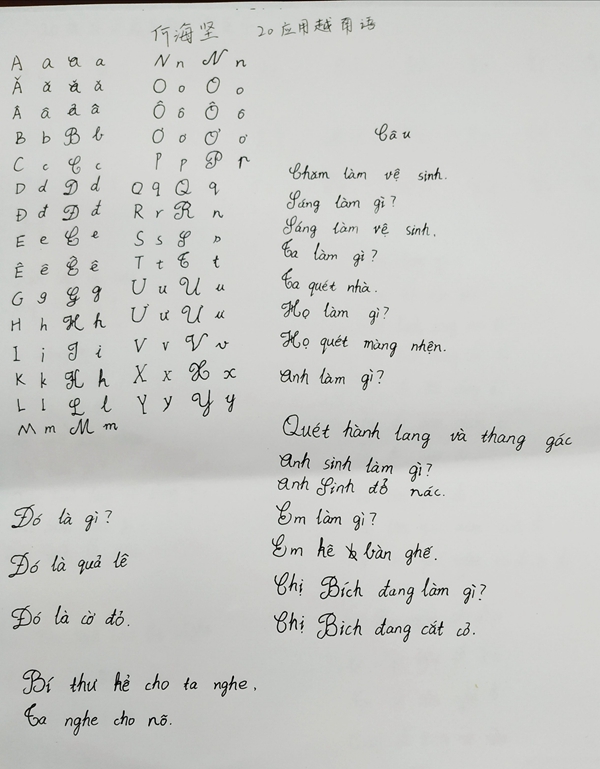 何海坚 20应用越南语
A a a a
Ă ă ă ă
Â â â â
B b B b
C c C c
D d D d
Đ đ Đ đ
E e E e
Ê ê Ê ê
G g G g
H h H h
I i I i
K k K k
L l L l
M m M m
N n N n
O o O o
Ô ô Ô ô
Ơ ơ Ơ ơ
P p P p
Q q Q q
R r R r
S s S s
T t T t
U u U u
Ư ư U u
V v V v
X x X x
Y y Y y
Đó là gì?
Đó là quả lê
Đó là cờ đỏ.
Bí thư kẻ cho ta nghe.
Ta nghe cho nõ.
Câu
Chăm làm vệ sinh.
Sáng làm gì?
Sáng làm vệ sinh.
Ta làm gì?
Ta quét nhà.
Họ làm gì?
Họ quét màng nhện.
Anh làm gì?
Quét hành lang và thang gác
Anh sinh làm gì?
Anh Sinh đổ nác.
Em làm gì?
Em kê bàn ghế.
Chị Bích đang làm gì?
Chị Bich đang cắt cỏ.